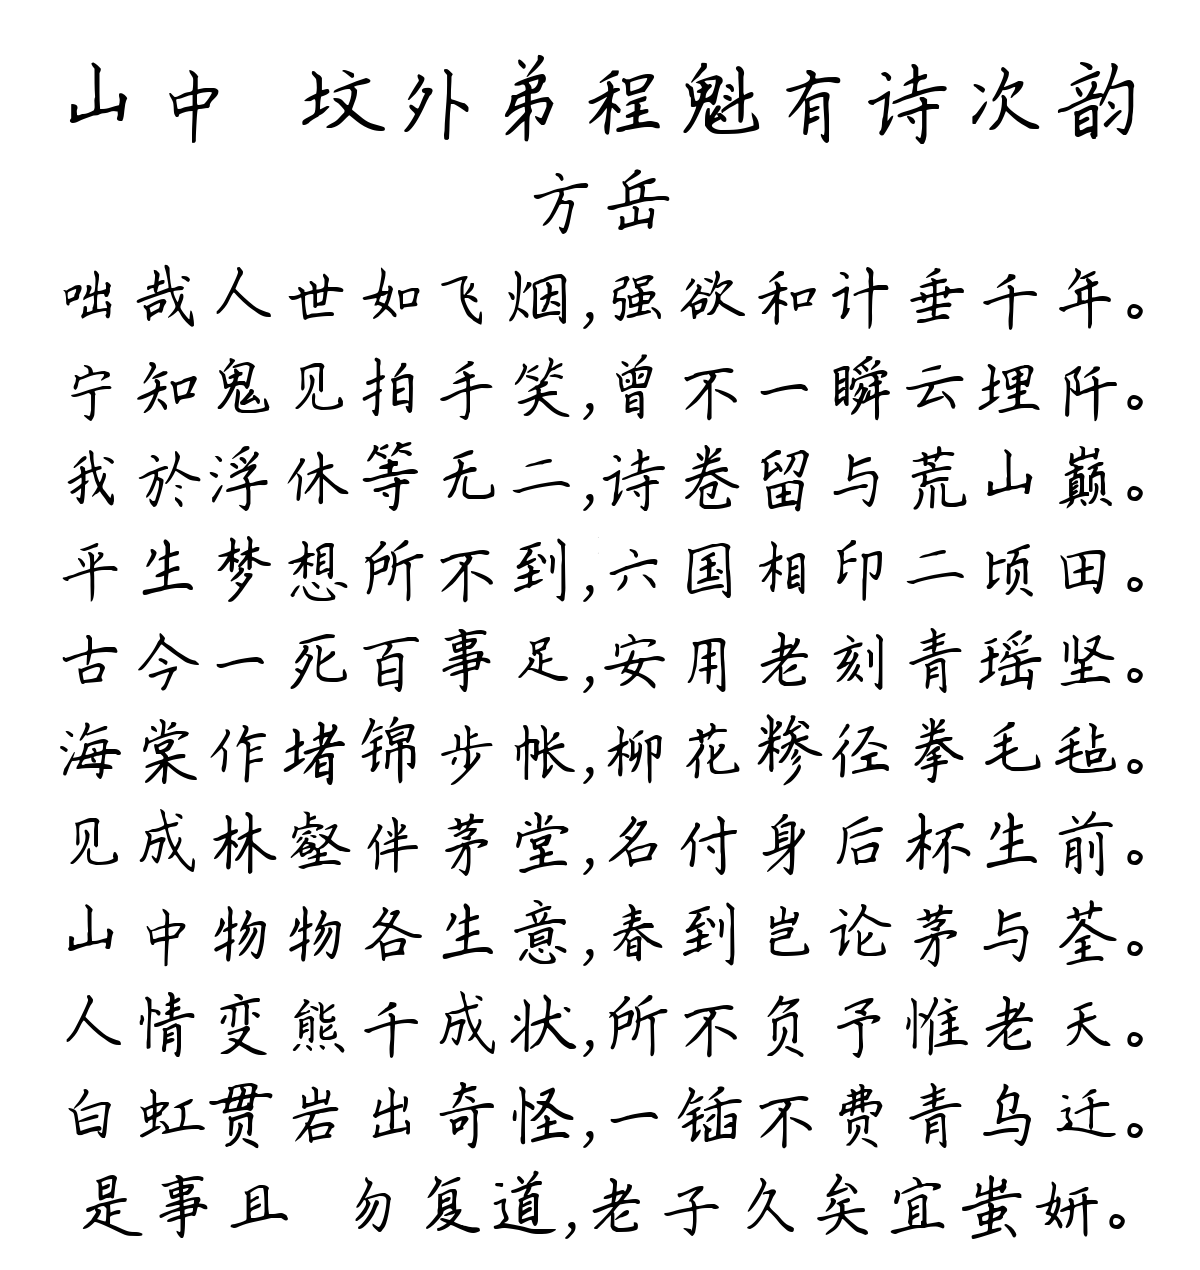 山中 坟外弟程魁有诗次韵
方岳
咄哉人世如飞烟,强欲和计垂千年。
宁知鬼见拍手笑,曾不一瞬云埋阡。
我於浮休等无二,诗卷留与荒山巅。
平生梦想所不到,六国相印二顷田。
古今一死百事足,安用老刻青瑶坚。
海棠作堵锦步帐,柳花糁径拳毛毡。
见成林壑伴茅堂,名付身后杯生前。
山中物物各生意,春到岂论茅与荃。
人情变熊千成状,所不负予惟老天。
白虹贯岩出奇怪,一锸不费青乌迁。
是事且 勿复道,老子久矣宜蚩妍。